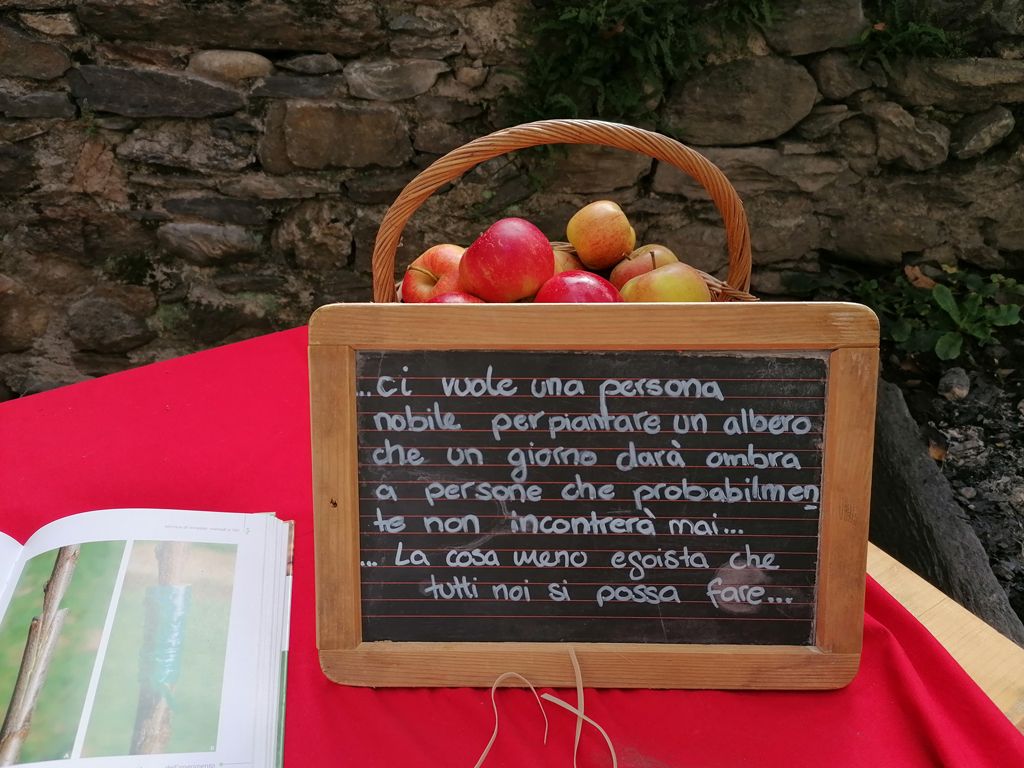 ...ci vuole una persona
nobile per piantare un albero
che un giorno darà ombra
a persone che probabilmen
te non incontrerà mai...
... La cosa meno egoista che
tutti noi si possa fare...